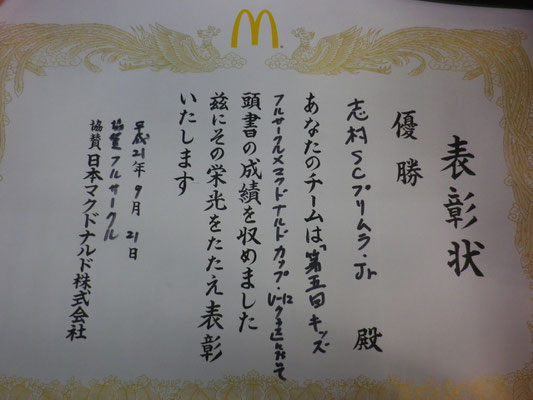 表彰状
優勝
志村SCプリムラ・Jr 殿
あなたのチームは「第五回キッズ
フルサークル×マクドナルドカップ・U-12
頭書の成績を収めました
茲にその栄光をたたえ表彰
いたします
平成21年9月21日
協賛フルサークル
協賛日本マクドナルド株式会社